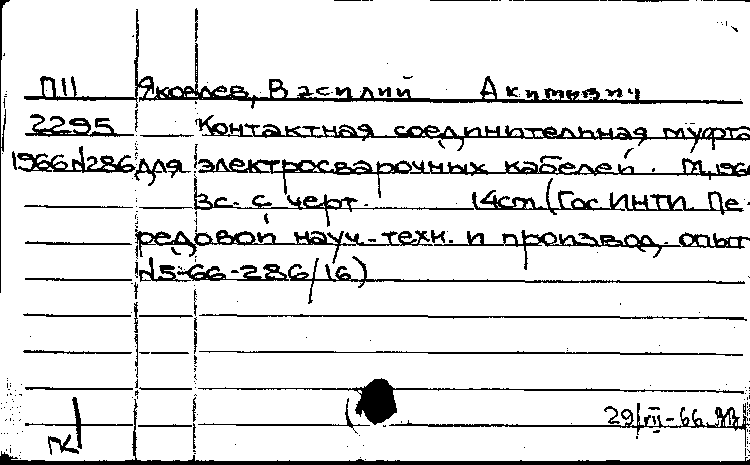 П11 Яковлев, Василий Акимович
2295 Контактная соединительная муфта
1966 N286 для электросварочных кабелей. М, 196
3с. с черт. 14см. (Гос ИНТИ. Пе-
редовой науч.-техн. и производ. опыт
N5-66-286/16)
29/VII-66
ПК